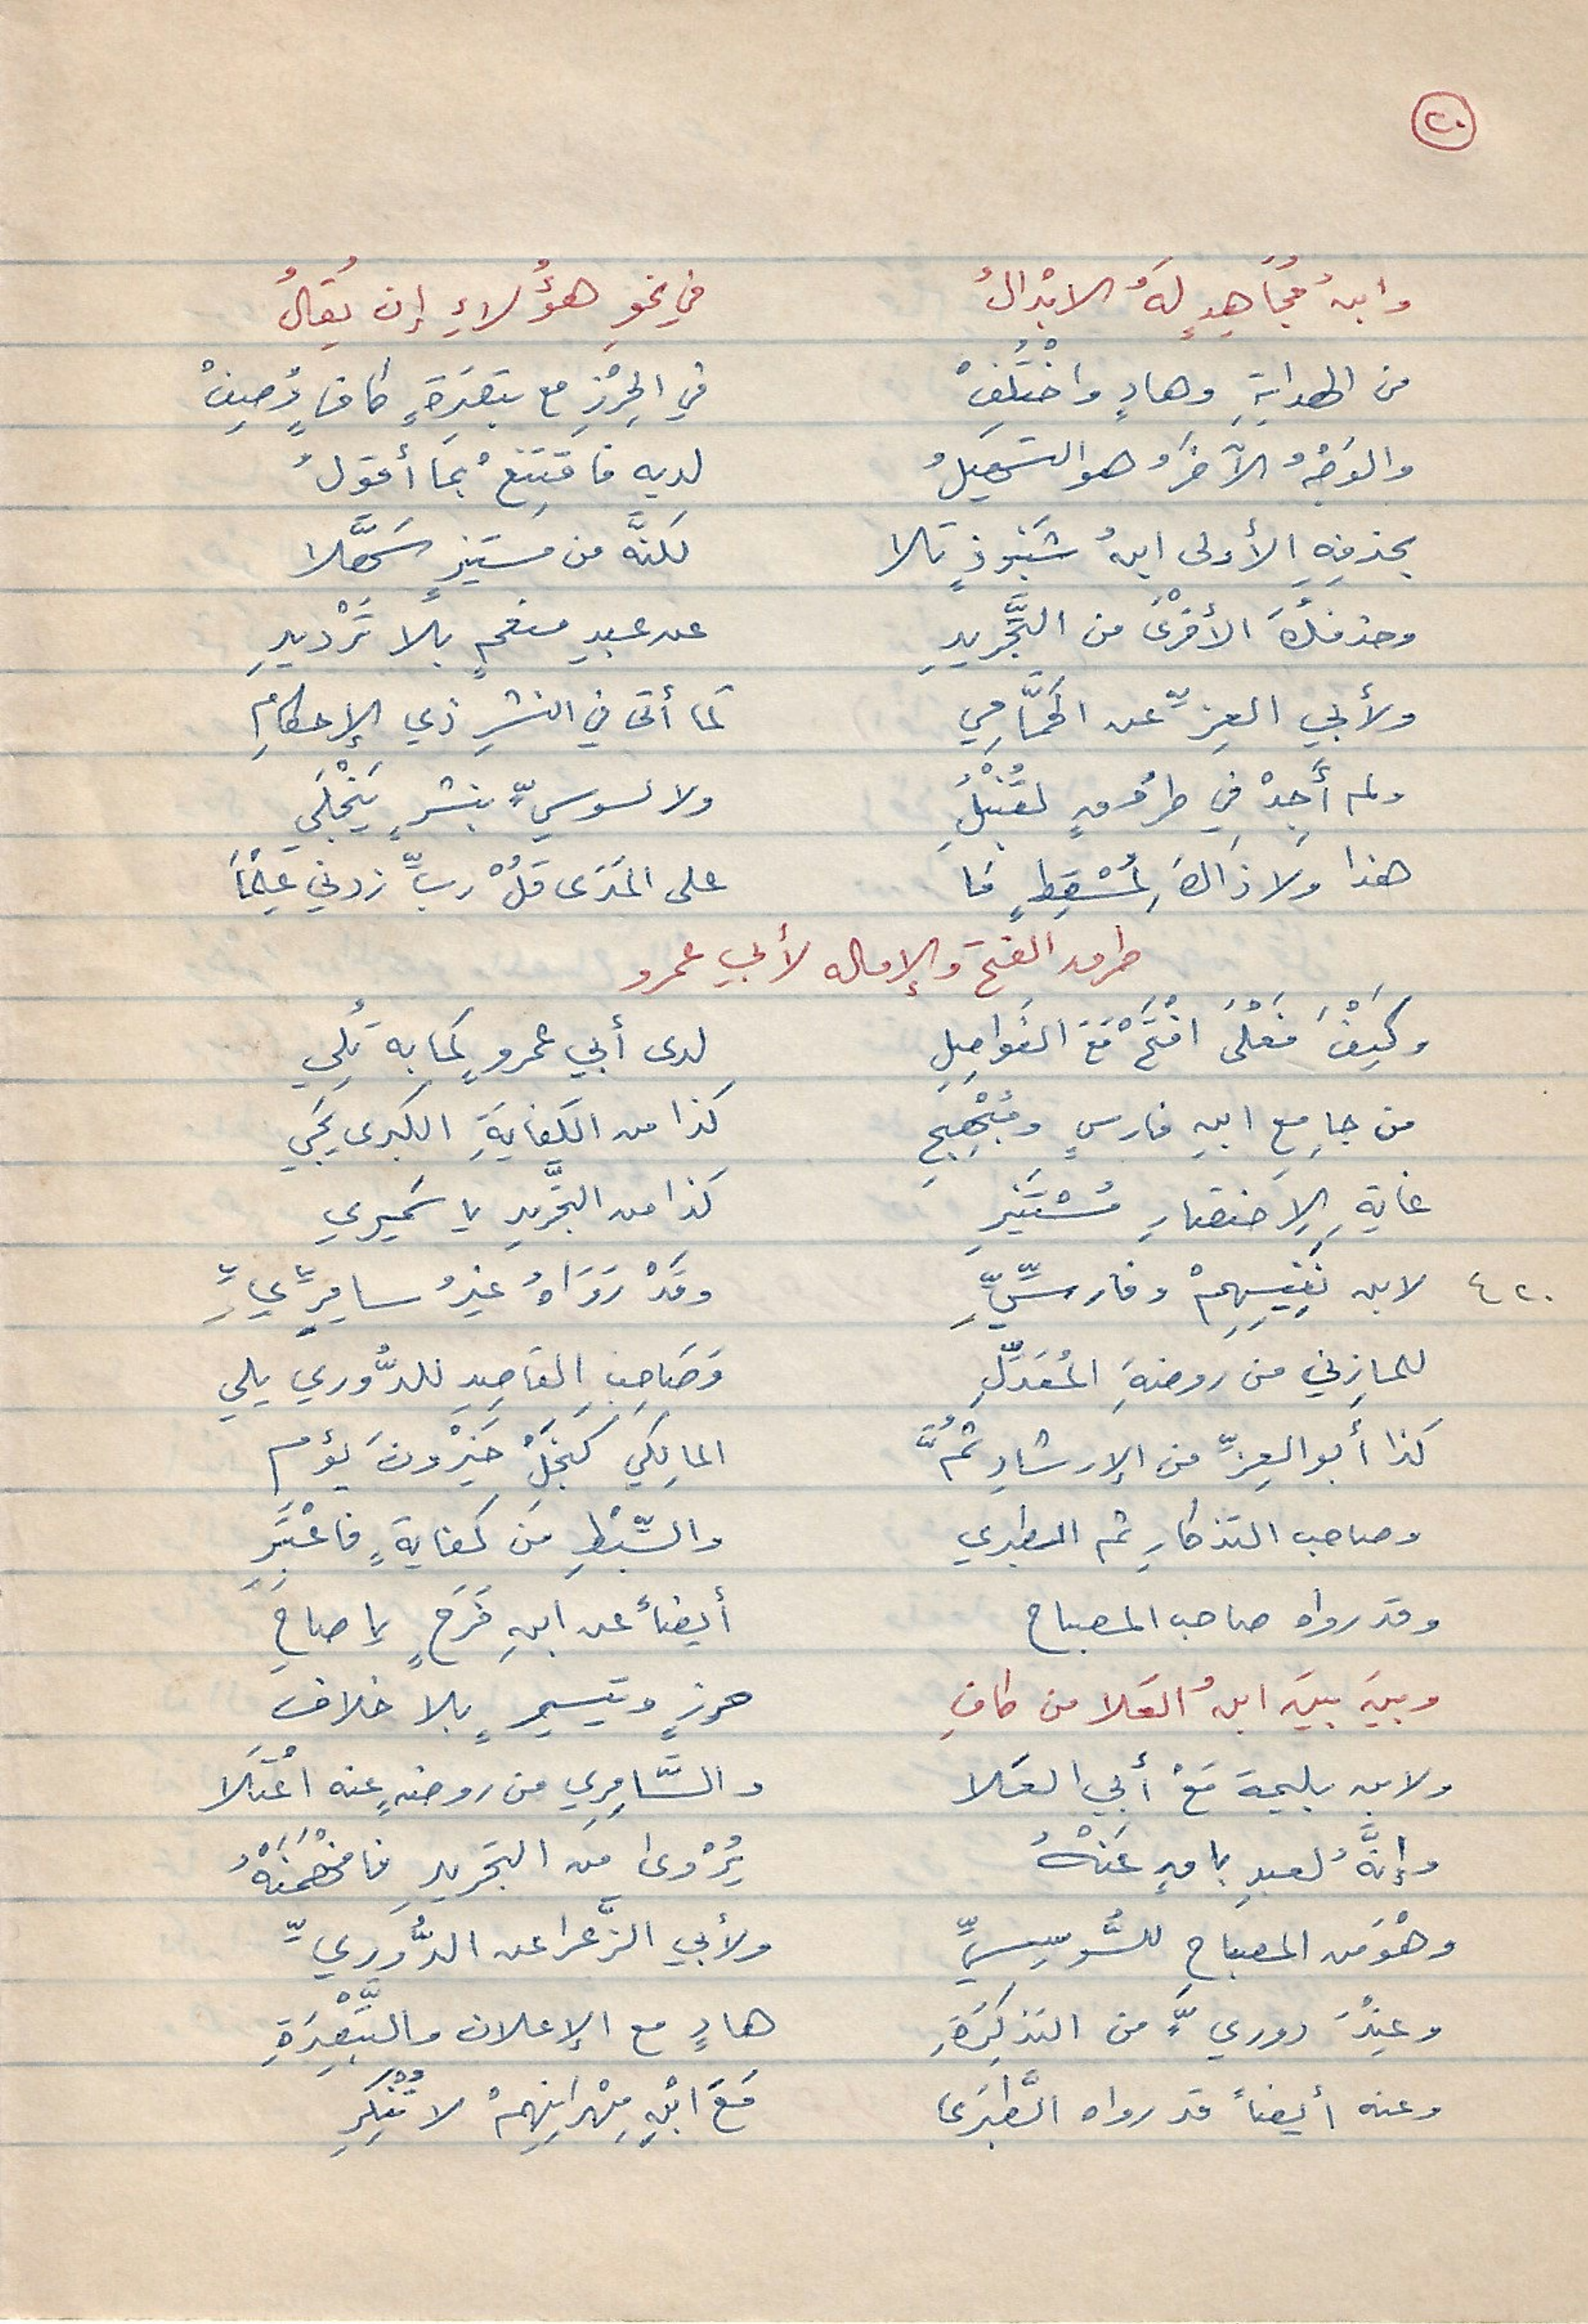 ٢٠
وابنُ مُجَاهِدٍ لَهُ الابْدالُ في نحوِ هؤُلاءِ إن يُقالُ
من الهدايَةِ وهادٍ واخْتُلِفْ في الحِرْزِ مع تبصِرَةٍ كافٍ وُصِفْ
والوَجْهُ الآخَرُ هو التسهيلُ لديهِ فاقتَنِعْ بمَا أقولُ
بحذفِهِ الأولى ابنُ شَنَبوذٍ تلا لكنَّه من مستنيرٍ سَهَّلا
وحذفُكَ الأُخْرَى من التَّجْريدِ عن عبدِ منعمٍ بلا تَرْديدِ
ولأبي العِزِّ عن الحَمَّامِي كما أتى في النشرِ ذي الإحكامِ
ولم أَجِدْ في طرُقٍ لقُنْبُلِ ولا لسوسيٍّ بنشرٍ يَنْجَلي
هذا ولا ذاكَ لمُسْقِطٍ فَمَا على المَدَى قُلْ ربِّ زدني عِلْمَا
طرق الفتح والإمالة لأبي عمرو
وكَيْفَ فَعْلَى افْتَحْ مَعَ الفَواصِلِ لدى أبي عمروٍ كمابه تُلِي
من جامِعِ ابنِ فارسٍ ومُبْهِجِ كذا من الكِفايَةِ الكبرى يَجِي
غايةِ الاِختصارِ مُسْتَنيرِ كذا من التَّجْريدِ يا سَميري
٤٢٠ لابن نَفِيسِهِمْ وفارسِيِّ وقَدْ رَوَاهُ غيرُ سامِرِيِّ
للمازِني من روضةِ المُعَدَّلِ وَصَاحِبِ القاصِدِ للدُّوري يلي
كذا أبو العِزِّ من الإرشادِ ثُمَّ المالِكي كنَجْلِ خَيْرُونَ يؤم
وصاحب التذكارِ ثم الطبري والسِّبْطِ مِن كفايةٍ فاعْتَبِرِ
وقد رواه صاحب المصباح أيضاً عن ابنِ فَرَحٍ يا صاحِ
وبَيْنَ بَيْنَ ابنُ العَلا من كافِ حرزٍ وتيسيرٍ بلا خلاف
ولابن بليمة مَعْ أبي العَلا والسَّامِرِي من روضةٍ عنه اعْتَلَا
وإنَّهُ لعبدِ باقٍ عَنْهُ يُرْوى مِن التجريدِ فافْهَمَنْهُ
وهْوَ من المصباحِ للسُّوسِيِّ ولأبي الزَّعرا عن الدُّوريِّ
وعِنْدَ دوريٍّ من التذكِرَةِ هادٍ مع الإعلان والتَّبْصِرَةِ
وعنه أيضاً قد رواه الطَّبَرى مَعَ ابْنِ مِهْرانِهِمْ لا تُنْكِرِ